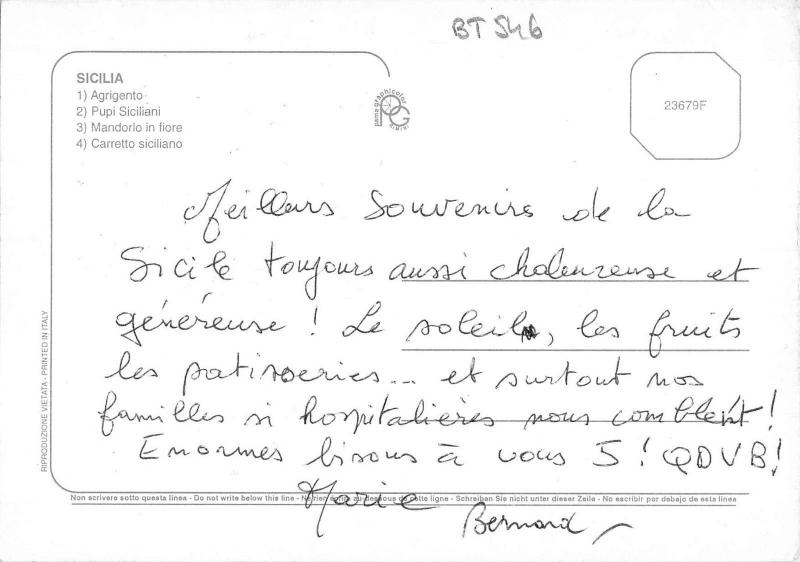 BT 546
SICILIA
1) Agrigento
2) Pupi Siciliani
3) Mandorlo in fiore
4) Carretto siciliano
pama graphicolor
RIMINI
23679F
Meilleurs Souvenirs de la
Sicile toujours aussi chaleureuse et
généreuse ! Le soleil, les fruits
les patisseries... et surtout nos
familles si hospitalières nous comblent !
Enormes bisous à vous 5 ! QDVB !
Marie
Bernard
Non scrivere sotto questa linea - Do not write below this line - Ne rien écrire au-dessous de cette ligne - Schreiben Sie nicht unter dieser Zeile - No escribir por debajo de esta linea
RIPRODUZIONE VIETATA - PRINTED IN ITALY